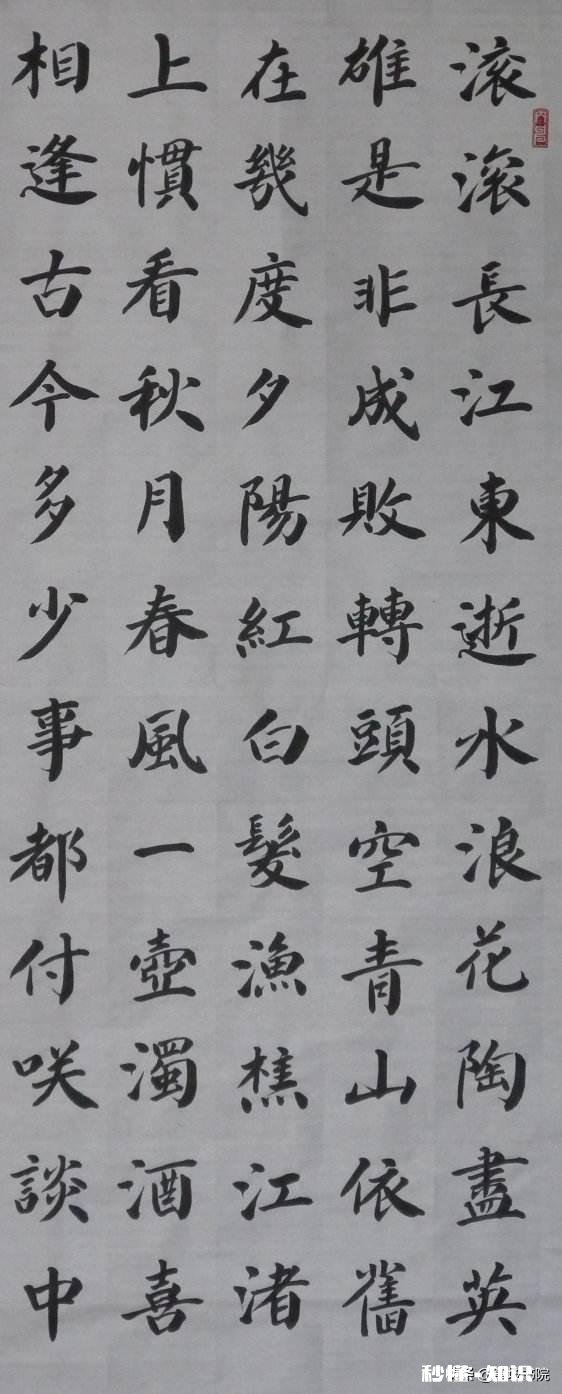 滚滚長江東逝水浪花陶盡英
雄是非成敗轉頭空青山依舊
在幾度夕陽紅白髮漁樵江渚
上慣看秋月春風一壺濁酒喜
相逢古今多少事都付咲談中
秒懂·知识